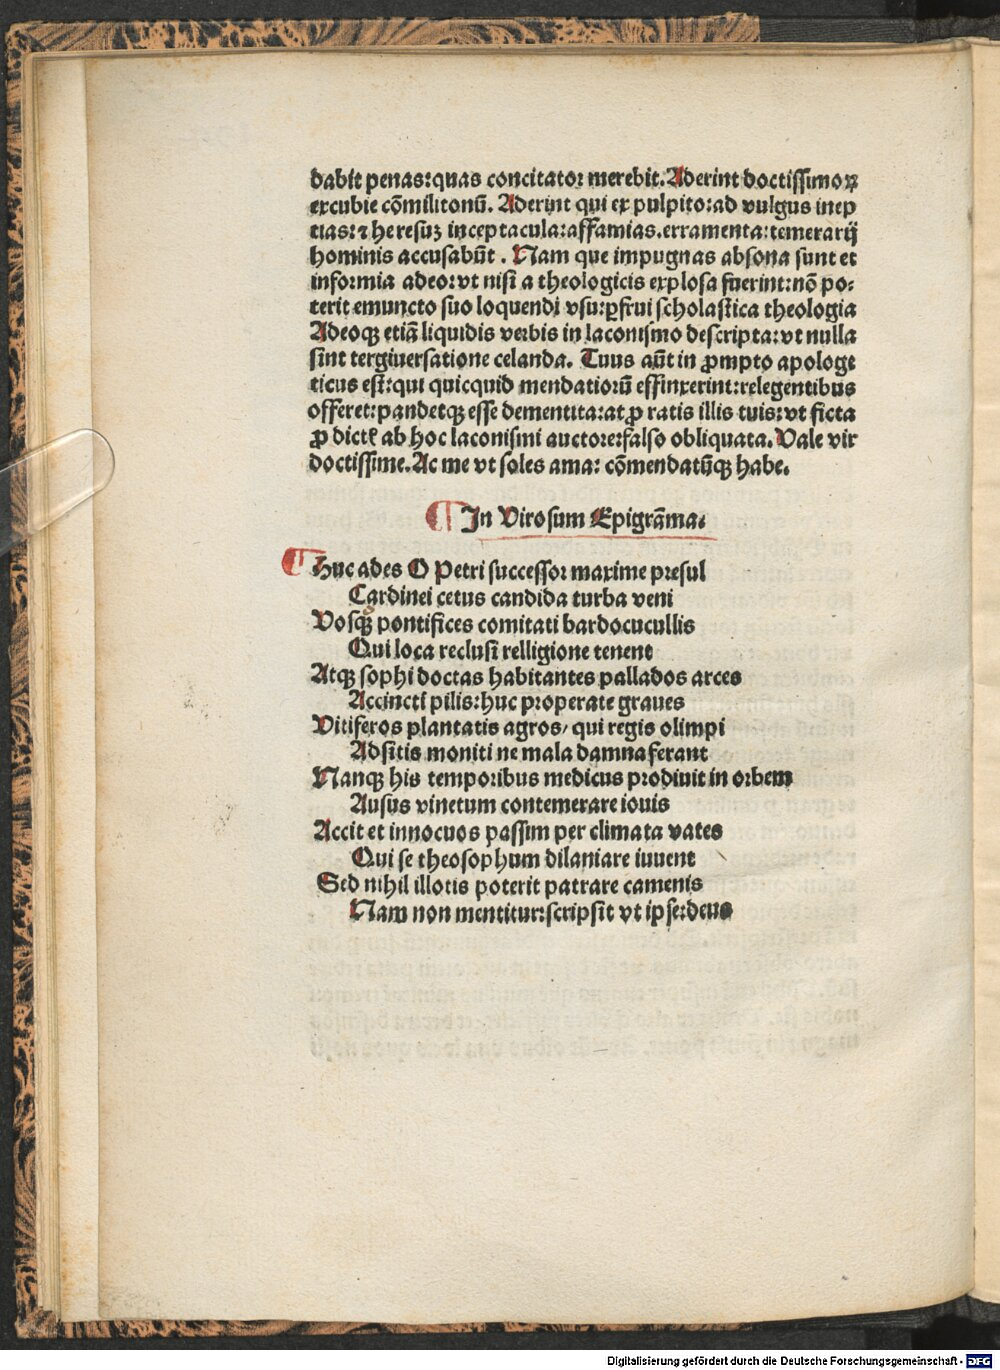 dabit penas:quas concitator merebit. Aderint doctissimoꝝ
excubie cōmilitonū. Aderint qui ex pulpito:ad vulgus inep
tias:⁊ heresuꝫ inceptacula:affamias.erramenta:temerarij
hominis accusabūt . Nam que impugnas absona sunt et
informia adeo:vt nisi a theologicis explosa fuerint:nō po⸗
terit emuncto suo loquendi vsu:ꝑfrui scholastica theologia
Adeoqꝫ etiā liquidis verbis in laconismo descripta:vt nulla
sint tergiuersatione celanda. Tuus aūt in ꝓmpto apologe
ticus est:qui quicquid mendatiorū effinxerint:relegentibus
offeret:pandetqꝫ esse dementita:at ꝓ ratis illis tuis:vt ficta
ꝓ dictꝭ ab hoc laconismi auctore:falso obliquata. Vale vir
doctissime. Ac me vt soles ama: cōmendatūqꝫ habe.
¶ In Virosum Epigrāma.
¶ Huc ades O Petri successor maxime presul
Cardinei cetus candida turba veni
Vosqꝫ pontifices comitati bardocucullis
Qui loca reclusi relligione tenent
Atqꝫ sophi doctas habitantes pallados arces
Accincti pilis:huc properate graues
Vitiferos plantatis agros/ qui regis olimpi
Adsitis moniti ne mala damna ferant
Nanqꝫ his temporibus medicus prodiuit in orbem
Ausus vinetum contemerare iouis
Accit et innocuos passim per climata vates
Qui se theosophum dilaniare iuuent
Sed nihil illotis poterit patrare camenis
Nam non mentitur:scripsit vt ipse:deus
Digitalisierung gefördert durch die Deutsche Forschungsgemeinschaft - DFG